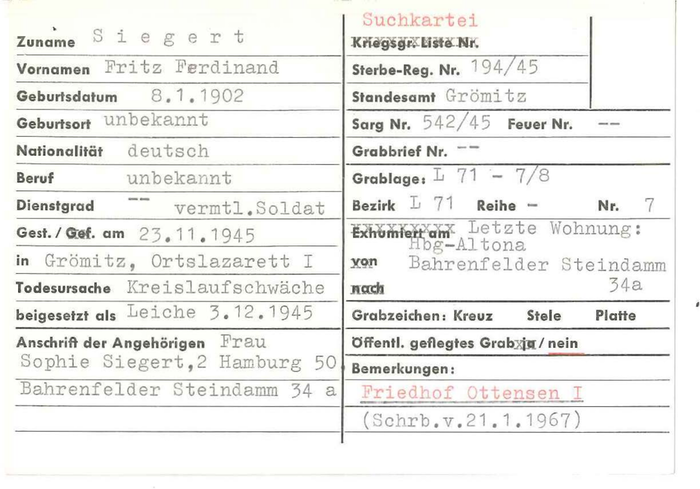 Zuname Siegert
Vornamen Fritz Ferdinand
Geburtsdatum 8.1.1902
Geburtsort unbekannt
Nationalität deutsch
Beruf unbekannt
Dienstgrad -- vermtl.Soldat
Gest./Gef. am 23.11.1945
in Grömitz, Ortslazarett I
Todesursache Kreislaufschwäche
beigesetzt als Leiche 3.12.1945
Anschrift der Angehörigen Frau
Sophie Siegert,2 Hamburg 50
Bahrenfelder Steindamm 34 a
Suchkartei
Kriegsgr. Liste Nr.
Sterbe-Reg. Nr. 194/45
Standesamt Grömitz
Sarg Nr. 542/45 Feuer Nr. --
Grabbrief Nr. --
Grablage: L 71 - 7/8
Bezirk L 71 Reihe - Nr. 7
Exhumiert am Letzte Wohnung:
Hbg-Altona
von Bahrenfelder Steindamm
nach 34a
Grabzeichen: Kreuz Stele Platte
Öffentl. gepflegtes Grab ja/nein
Bemerkungen:
Friedhof Ottensen I
(Schrb.v.21.1.1967)